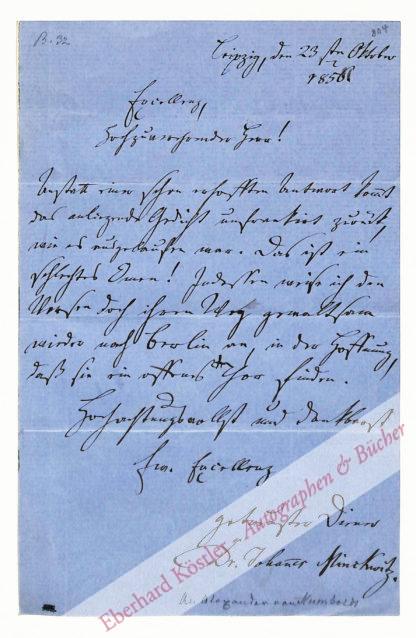 B. 32
804
Leipzig, den 23sten Oktober
1858
Excellenz,
Hochzuverehrender Herr!
Anstatt einer schon erhofften Antwort kommt
das anliegende Gedicht unfrankirt zurück,
wie es ausgelaufen war. Das ist ein
schlechtes Omen! Indessen weise ich den
Versen doch ihren Weg gewaltsam
wieder nach Berlin an, in der Hoffnung,
daß sie ein offenes Thor finden.
Hochachtungsvollst und dankbarst
Ew. Excellenz
Diener
Dr. Johannes Minckwitz.
An Alexander von Humboldt
Eberhard Köstler - Autographen & Bücher